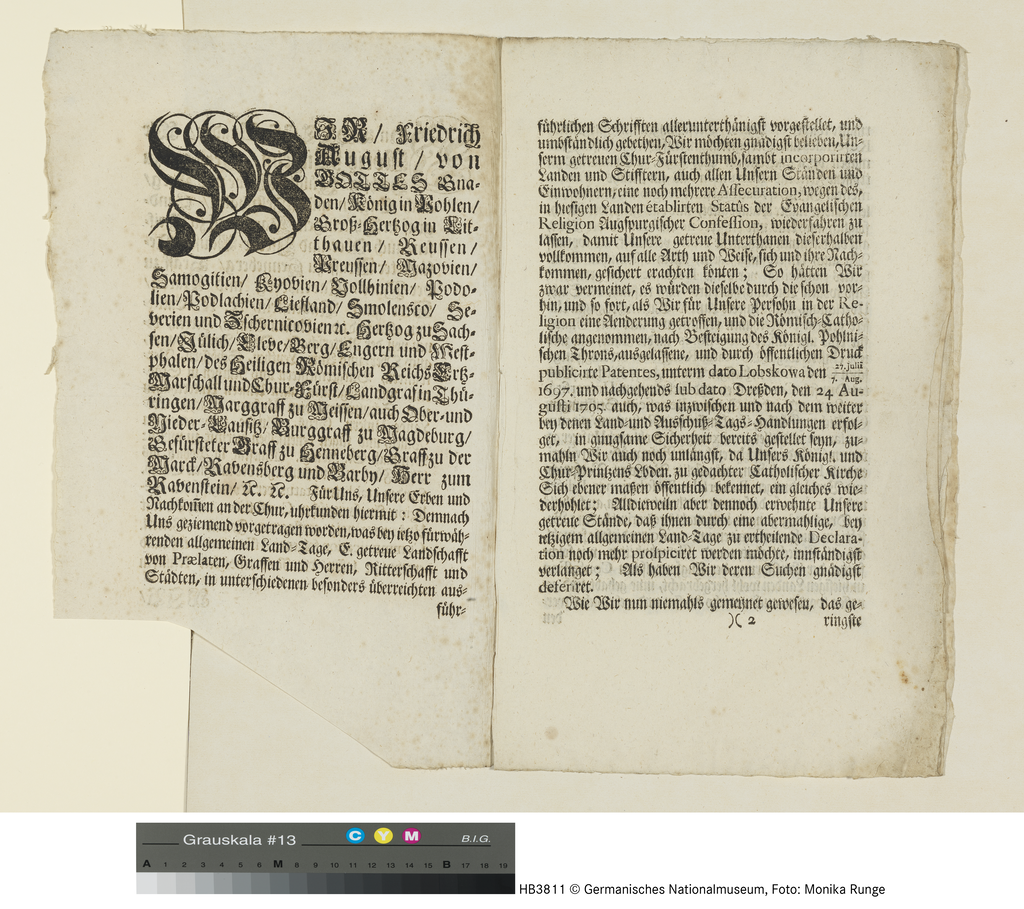 WIR / Friedrich
August / von
GOTTES Gna-
den / König in Pohlen /
Groß-Hertzog in Lit-
thauen / Reussen /
Preussen / Mazovien /
Samogitien / Kyovien / Vollhinien / Podo-
lien / Podlachien / Liefland / Smolensco / Se-
verien und Tschernicovien ꝛc. Hertzog zu Sach-
sen / Jülich / Cleve / Berg / Engern und West-
phalen / des Heiligen Römischen Reichs Ertz-
Marschall und Chur-Fürst / Landgraf in Thü-
ringen / Marggraff zu Meissen / auch Ober- und
Nieder-Lausitz / Burggraff zu Magdeburg /
Gefürsteter Graff zu Henneberg / Graff zu der
Marck / Ravensberg und Barby / Herr zum
Ravenstein / ꝛc. ꝛc. Für Uns, Unsere Erben und
Nachkom̃en an der Chur, uhrkunden hiermit: Demnach
Uns geziemend vorgetragen worden, was bey ietzo fürwäh-
renden allgemeinen Land-Tage, E. getreue Landschafft
von Prælaten, Graffen und Herren, Ritterschafft und
Städten, in unterschiedenen besonders überreichten aus-
führ-
führlichen Schrifften allerunterthänigst vorgestellet, und
umbständlich gebethen, Wir möchten gnädigst belieben, Un-
serm getreuen Chur-Fürstenthumb, sambt incorporirten
Landen und Stifftern, auch allen Unsern Ständen und
Einwohnern, eine noch mehrere Assecuration, wegen des,
in hiesigen Landen établirten Statûs der Evangelischen
Religion Augspurgischer Confession, wiederfahren zu
lassen, damit Unsere getreue Unterthanen dieserhalben
vollkommen, auf alle Arth und Weise, sich und ihre Nach-
kommen, gesichert erachten könten; So hätten Wir
zwar vermeinet, es würden dieselbe durch die schon vor-
hin, und so fort, als Wir für Unsere Persohn in der Re-
ligion eine Aenderung getroffen, und die Römisch-Catho-
lische angenommen, nach Besteigung des Königl. Pohlni-
schen Throns, ausgelassene, und durch öffentlichen Druck
publicirte Patentes, unterm dato Lobskowa den 27. Julii / 7. Aug.
1697. und nachgehends sub dato Dreßden, den 24 Au-
gusti 1705. auch, was inzwischen und nach dem weiter
bey denen Land- und Ausschuß-Tags-Handlungen erfol-
get, in gnugsame Sicherheit bereits gestellet seyn, zu-
mahln Wir auch noch unlängst, da Unsers Königl. und
Chur-Printzens Lbden. zu gedachter Catholischer Kirche
Sich ebener maßen öffentlich bekennet, ein gleiches wie-
derhohlet; Alldieweiln aber dennoch erwehnte Unsere
getreue Stände, daß ihnen durch eine abermahlige, bey
ietzigem allgemeinen Land-Tage zu ertheilende Declara-
tion noch mehr prospiciret werden möchte, innständigst
verlanget; Als haben Wir deren Suchen gnädigst
deferiret.
Wie Wir nun niemahls gemeynet gewesen, das ge-
)( 2 ringste
Grauskala #13 C Y M B.I.G.
A 1 2 3 4 5 6 M 8 9 10 11 12 13 14 15 B 17 18 19
HB3811 © Germanisches Nationalmuseum, Foto: Monika Runge